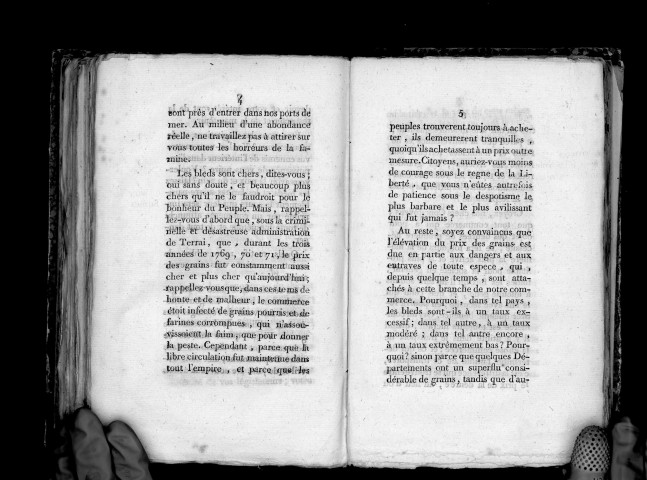 4
sont près d'entrer dans nos ports de
mer. Au milieu d'une abondance
réelle, ne travaillez pas à attirer sur
vous toutes les horreurs de la fa-
mine.
Les bleds sont chers, dites-vous ;
oui sans doute, et beaucoup plus
chers qu'il ne le faudroit pour le
bonheur du Peuple. Mais, rappel-
lez-vous d'abord que, sous la crimi-
nelle et désastreuse administration
de Terrai, que, durant les trois
années de 1769, 70 et 71, le prix
des grains fut constamment aussi
cher et plus cher qu'aujourd'hui ;
rappellez-vous que, dans ces tems de
honte et de malheur, le commerce
étoit infecté de grains pourris et de
farines corrompues, qui n'assou-
vissoient la faim, que pour donner
la peste. Cependant, parce que la
libre circulation fut maintenue dans
tout l'empire, et parce que les
5
peuples trouverent toujours à ache-
ter, ils demeurerent tranquilles,
quoiqu'ils achetassent à un prix outre
mesure. Citoyens, auriez-vous moins
de courage sous le regne de la Li-
berté, que vous n'eûtes autrefois
de patience sous le despotisme le
plus barbare et le plus avilissant
qui fut jamais ?
Au reste, soyez convaincus que
l'élévation du prix des grains est
due en partie aux dangers et aux
entraves de toute espece, qui,
depuis quelque temps, sont atta-
chés à cette branche de notre com-
merce. Pourquoi, dans tel pays,
les bleds sont-ils à un taux ex-
cessif ; dans tel autre, à un taux
modéré ; dans tel autre encore,
à un taux extrêmement bas ? Pour-
quoi ? sinon parce que quelques Dé-
partements ont un superflu consi-
dérable de grains, tandis que d'au-